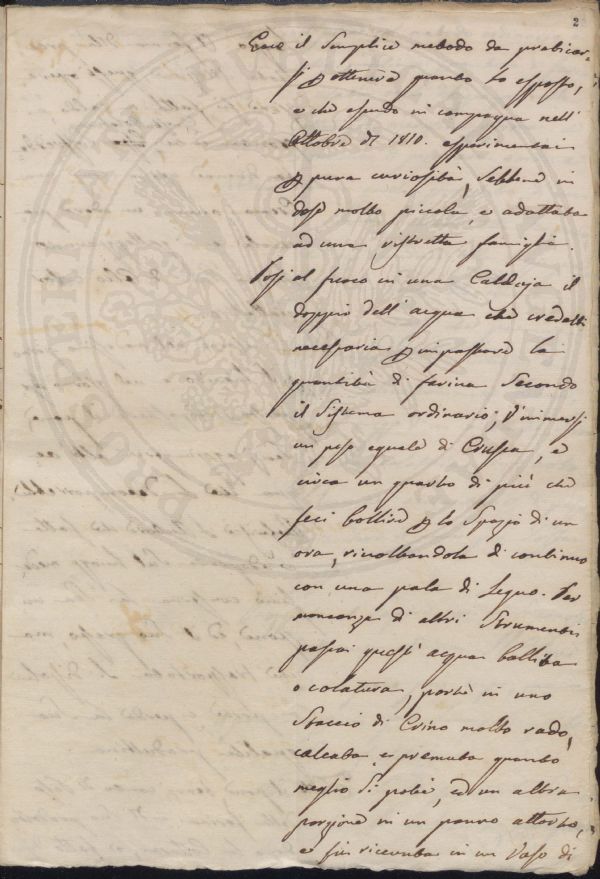 2
Ecco il semplice metodo da praticar-
si p ottenere quanto ho esposto,
e che essendo in campagna nell'
Ottobre del 1810. esperimentai
p pura curiosità, sebbene in
dose molto piccola, e adattata
ad una ristretta famiglia.
Posi al fuoco in una Caldaja il
doppio dell'acqua che credetti
necessaria p impastare la
quantità di farina secondo
il sistema ordinario; v'immersi
un peso eguale di Crusca, e
circa un quarto di più che
feci bollire p lo spazio di un
ora, rivoltandola di continuo
con una pala di legno. Per
mancanza di altri strumenti
passai quest'acqua bollita
o colatura, parte in uno
Staccio di Crino molto rado,
calcata, e premuta quanto
meglio si potè, ed un altra
porzione in un panno attorto,
e fu ricevuta in un Vaso di